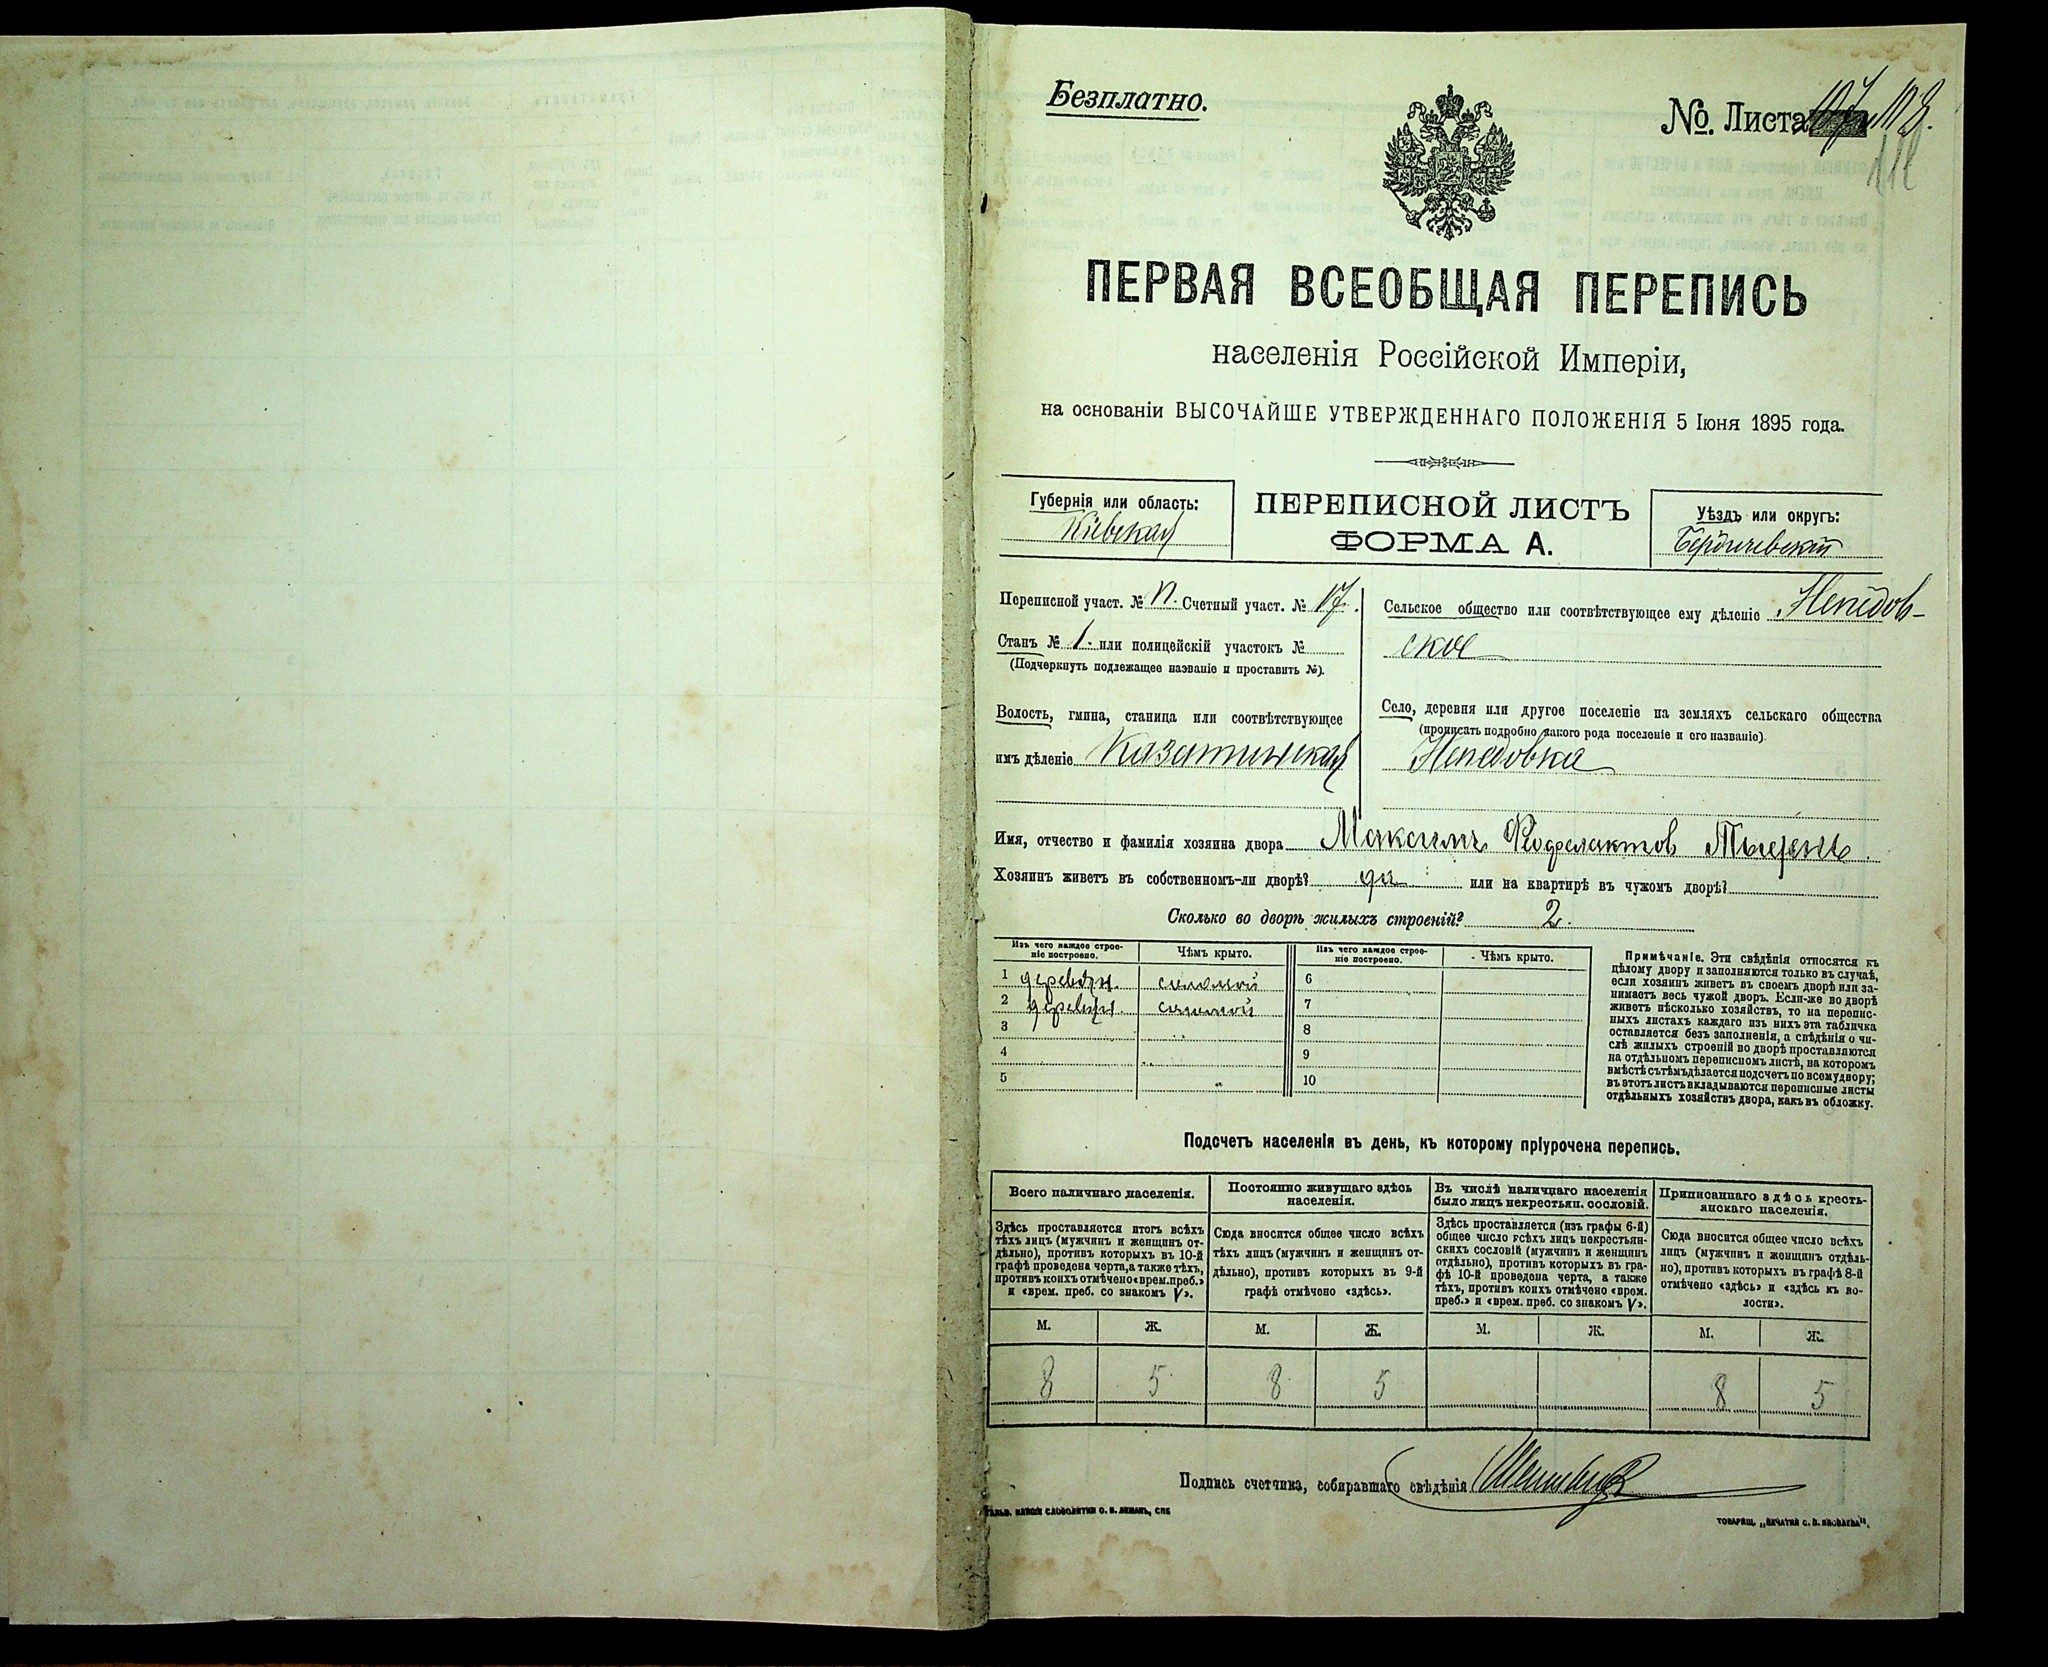 Безплатно.
№. Листа 107 и 108.
112
ПЕРВАЯ ВСЕОБЩАЯ ПЕРЕПИСЬ
населенія Россійской Имперіи,
на основаніи ВЫСОЧАЙШЕ УТВЕРЖДЕННАГО ПОЛОЖЕНІЯ 5 Іюня 1895 года.
Губернія или область:
Кіевская
ПЕРЕПИСНОЙ ЛИСТЪ
ФОРМА А.
Уѣздъ или округъ:
Бердичевскій
Переписной участ. № Счетный участ. № 17.
Станъ № 1. или полицейскій участокъ №
(Подчеркнуть подлежащее названіе и проставить №).
Волость, гмина, станица или соотвѣтствующее
имъ дѣленіе Казатинская
Сельское общество или соотвѣтствующее ему дѣленіе Непедов-
ское
Село, деревня или другое поселеніе на земляхъ сельскаго общества
(прописать подробно какого рода поселеніе и его названіе)
Непедовка
Имя, отчество и фамилія хозяина двора Максимъ Феофелактов
Хозяинъ живетъ въ собственномъ-ли дворѣ? да или на квартирѣ въ чужомъ дворѣ?
Сколько во дворѣ жилыхъ строеній? 2.
Изъ чего каждое строе-
ніе построено.
Чѣмъ крыто.
Изъ чего каждое строе-
ніе построено.
Чѣмъ крыто.
1 деревян. соломой 6
2 деревян. соломой 7
3 8
4 9
5 10
Примѣчаніе. Эти свѣдѣнія относятся къ
цѣлому двору и заполняются только въ случаѣ,
если хозяинъ живетъ въ своемъ дворѣ или за-
нимаетъ весь чужой дворъ. Если-же во дворѣ
живетъ нѣсколько хозяйствъ, то на перепис-
ныхъ листахъ каждаго изъ нихъ эта табличка
оставляется безъ заполненія, а свѣдѣнія о чи-
слѣ жилыхъ строеній во дворѣ проставляются
на отдѣльномъ переписномъ листѣ, на которомъ
вмѣстѣ съ тѣмъ дѣлается подсчетъ по всему двору;
въ этотъ листъ вкладываются переписные листы
отдѣльныхъ хозяйствъ двора, какъ въ обложку.
Подсчетъ населенія въ день, къ которому пріурочена перепись.
Всего наличнаго населенія.
Здѣсь проставляется итогъ всѣхъ
тѣхъ лицъ (мужчинъ и женщинъ от-
дѣльно), противъ которыхъ въ 10-й
графѣ проведена черта, а также тѣхъ,
противъ коихъ отмѣчено «врем. преб.»
и «врем. преб. со знакомъ V».
Постоянно живущаго здѣсь
населенія.
Сюда вносится общее число всѣхъ
тѣхъ лицъ (мужчинъ и женщинъ от-
дѣльно), противъ которыхъ въ 9-й
графѣ отмѣчено «здѣсь».
Въ числѣ наличнаго населенія
было лицъ некрестьян. сословій.
Здѣсь проставляется (изъ графы 6-й)
общее число всѣхъ лицъ некрестьян-
скихъ сословій (мужчинъ и женщинъ
отдѣльно), противъ которыхъ въ гра-
фѣ 10-й проведена черта, а также
тѣхъ, противъ коихъ отмѣчено «врем.
преб.» и «врем. преб. со знакомъ V».
Приписаннаго здѣсь кресть-
янскаго населенія.
Сюда вносится общее число всѣхъ
лицъ (мужчинъ и женщинъ отдѣль-
но), противъ которыхъ въ графѣ 8-й
отмѣчено «здѣсь» и «здѣсь въ во-
лости».
М. Ж. М. Ж. М. Ж. М. Ж.
8 5 8 5 8 5
Подпись счетчика, собиравшаго свѣдѣнія
ТОВАРИЩ. „ПЕЧАТНЯ С. П. ЯКОВЛЕВА".